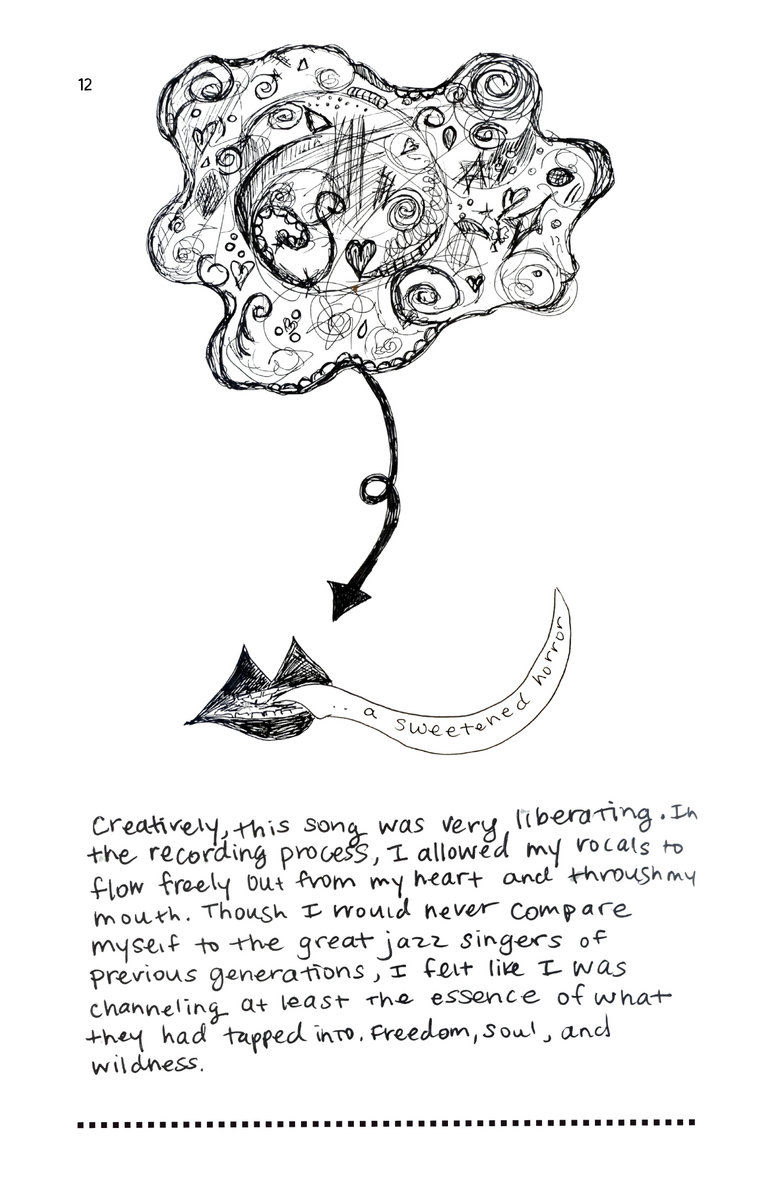 12
.. a sweetened horror
Creatively, this song was very liberating. In
the recording process, I allowed my vocals to
flow freely out from my heart and through my
mouth. Though I would never compare
myself to the great jazz singers of
previous generations, I felt like I was
channeling at least the essence of what
they had tapped into. Freedom, soul, and
wildness.